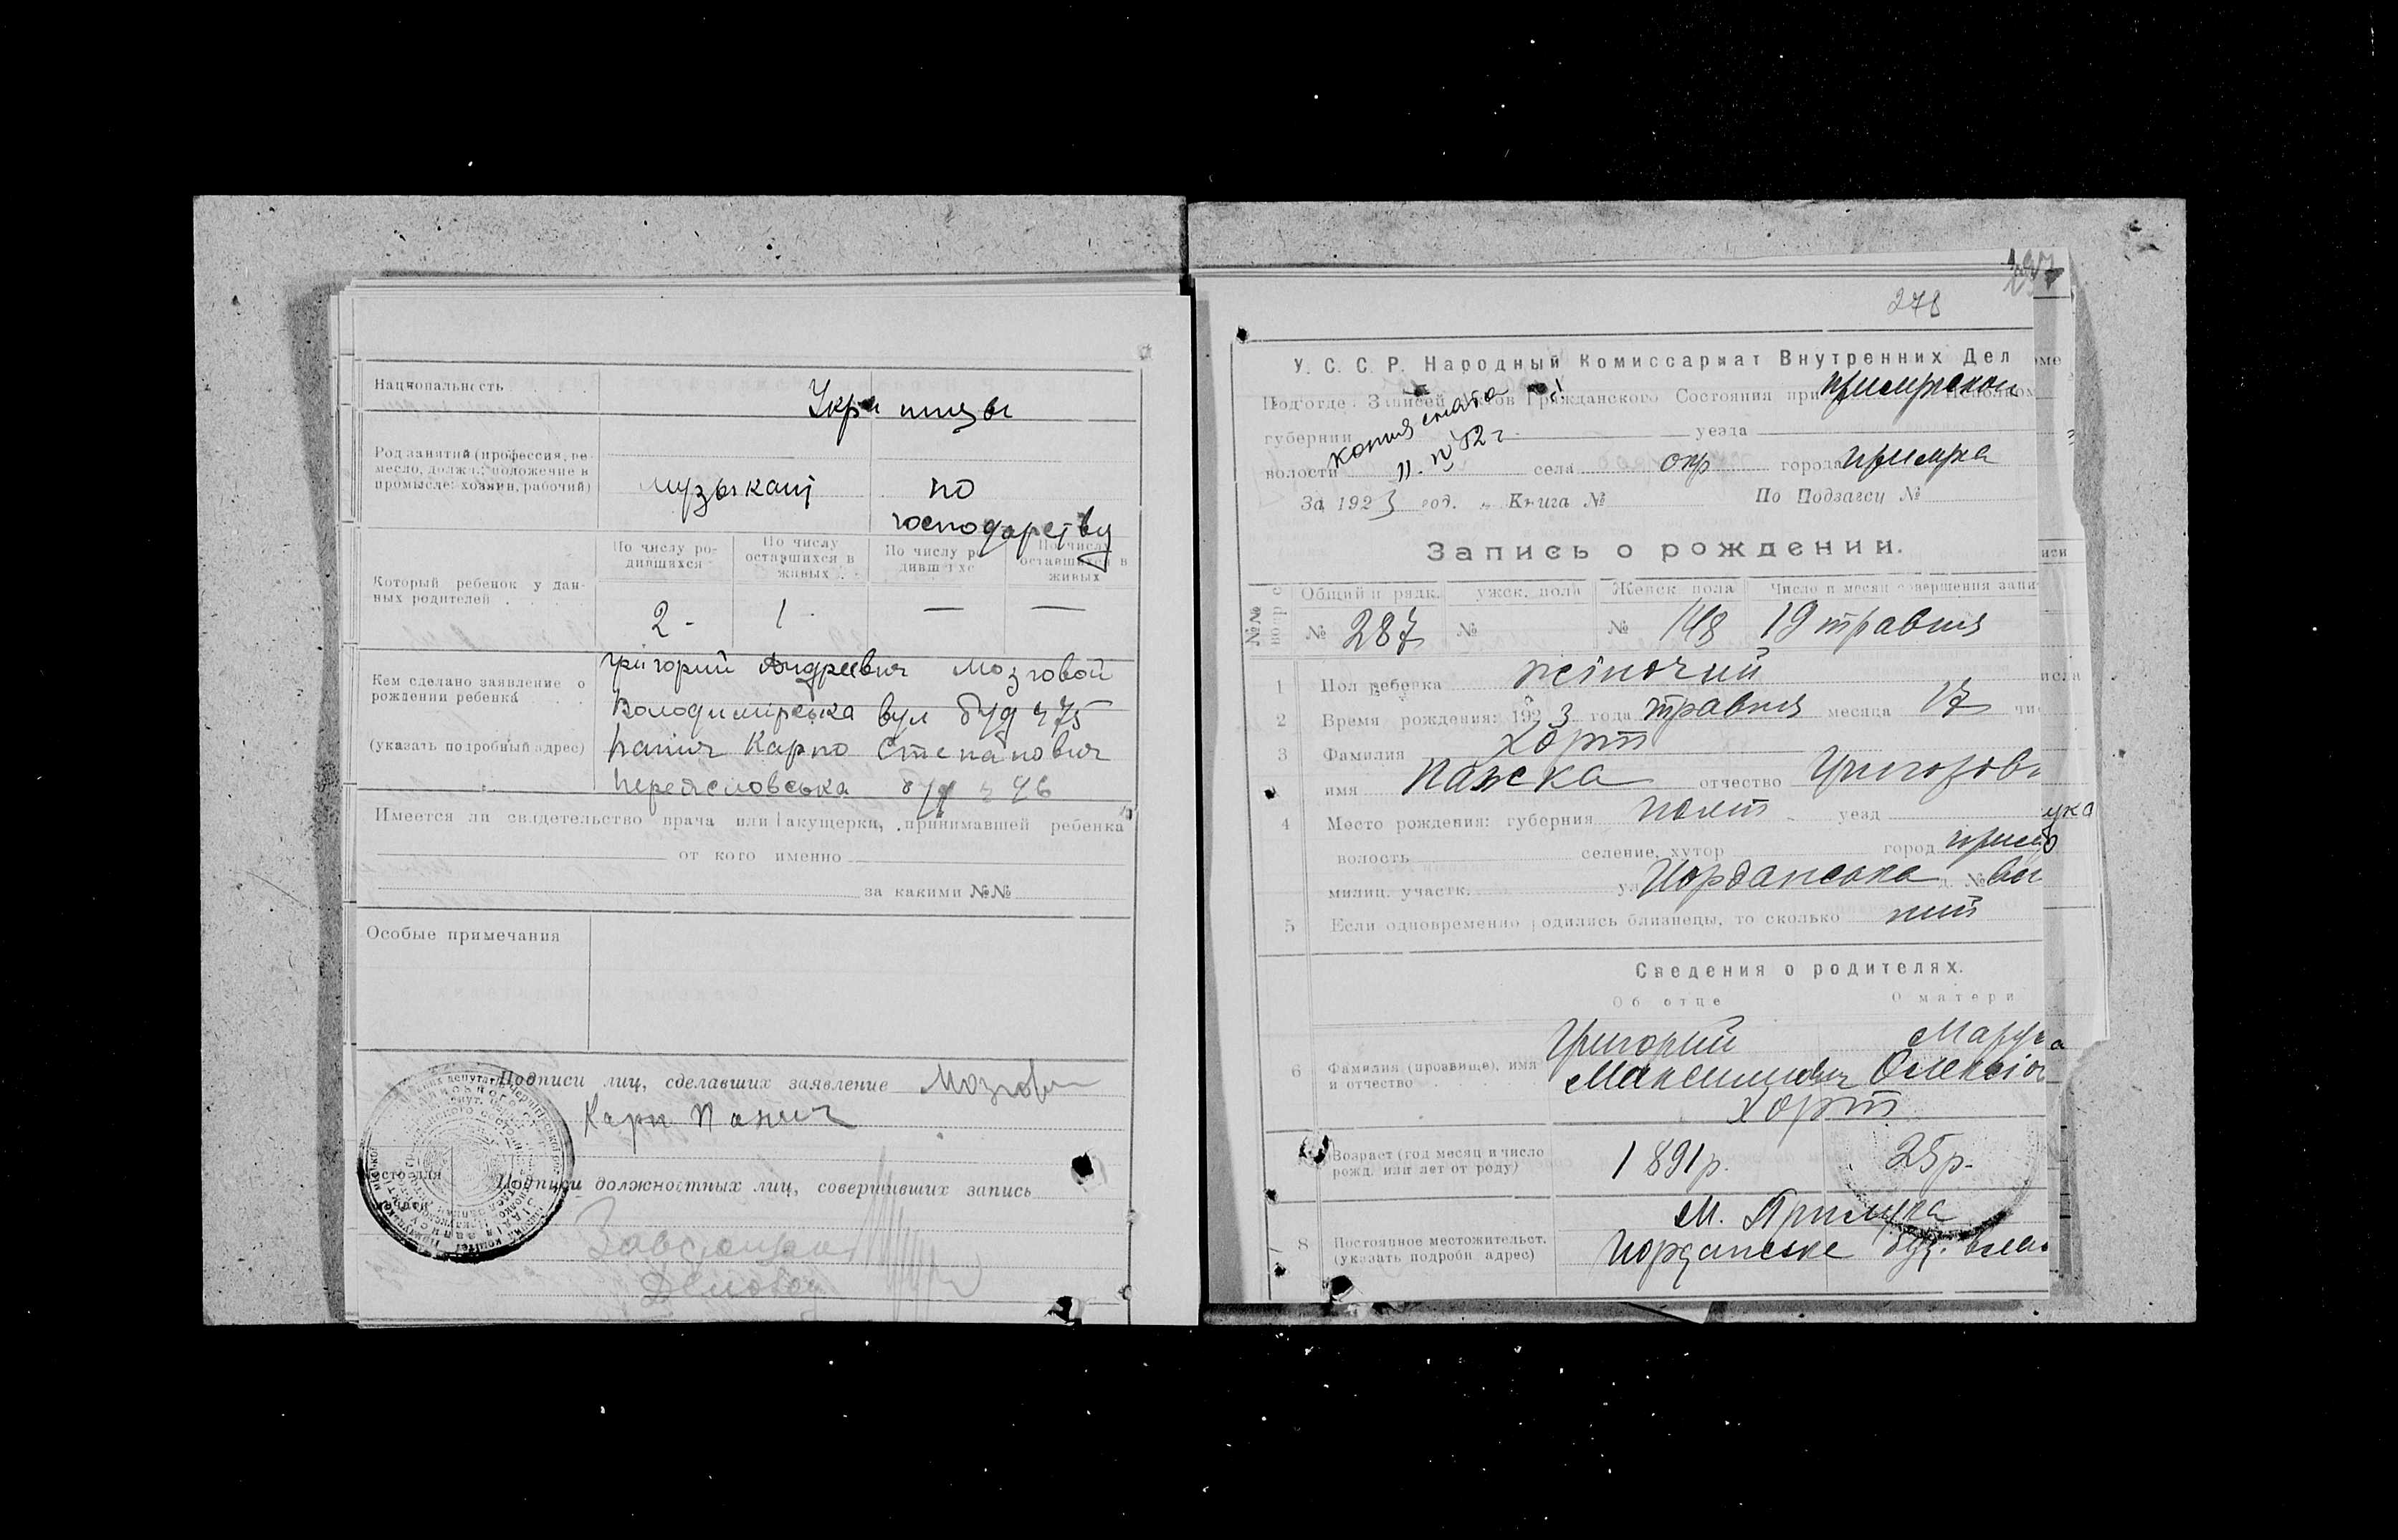 Национальность
Укра инцы
Род занятий (профессия, ре-
месло, должн.; положение в
промысле: хозяин, рабочий)
музыкант
по
господарству
Который ребенок у дан-
ных родителей
По числу ро-
дившихся
По числу
оставшихся в
живых
По числу ро
дившихс
По числу
оставшихся в
живых
2 - 1 - — —
Кем сделано заявление о
рождении ребенка
(указать подробный адрес)
Григорий Андреевич Мозговой
Володимірська вул буд ч 75
Панич Карпо Степанович
Переясловська буд ч 46
Имеется ли свидетельство врача или акушерки, принимавшей ребенка
от кого именно
за какими №№
Особые примечания
Подписи лиц, сделавших заявление Мозгов
Карп Панич
Подписи должностных лиц, совершивших запись
Діловод
278
У. С. С. Р. Народный Комиссариат Внутренних Дел
Подотде Записей Актов Гражданского Состояния при Исполком
губернии уезда
копия снята
11. IV 52 г
волости села окр города Прилука
За 1923 год. Книга № По Подзагсу №
Запись о рождении.
Общий п рядк. ужск. пола Женск пола Число и месяц совершения запи
№ 287 № № 148 19 травня
1 Пол ребенка жіночий
2 Время рождения: 1923 года травня месяца 17 чи
3 Фамилия Хорт
имя отчество
4 Место рождения: губерния Полт уезд
волость селение, хутор город
милиц. участк. ул Йорданська д. №
5 Если одновременно родились близнецы, то сколько
Сведения о родителях.
Об отце О матери
6 Фамилия (прозвище), имя
и отчество
Григорий
Максимович Олексіє
Хорт
Возраст (год месяц и число
рожд. или лет от роду)
1891 р. 25 р.
8 Постоянное местожительст.
(указать подробн адрес)
м. Прилука
Йорданське буд. влас